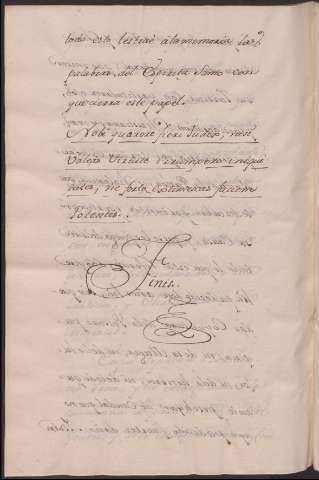 todo esto lestraè à la memoria las
palabras del Espiritu Santo con
que cierra este papel.
Noli quærere fieri Judex, nisi
Valeas Virtute irrumpere iniqui
tates, ne forte extimescas faciem
Potentis.
Finis.